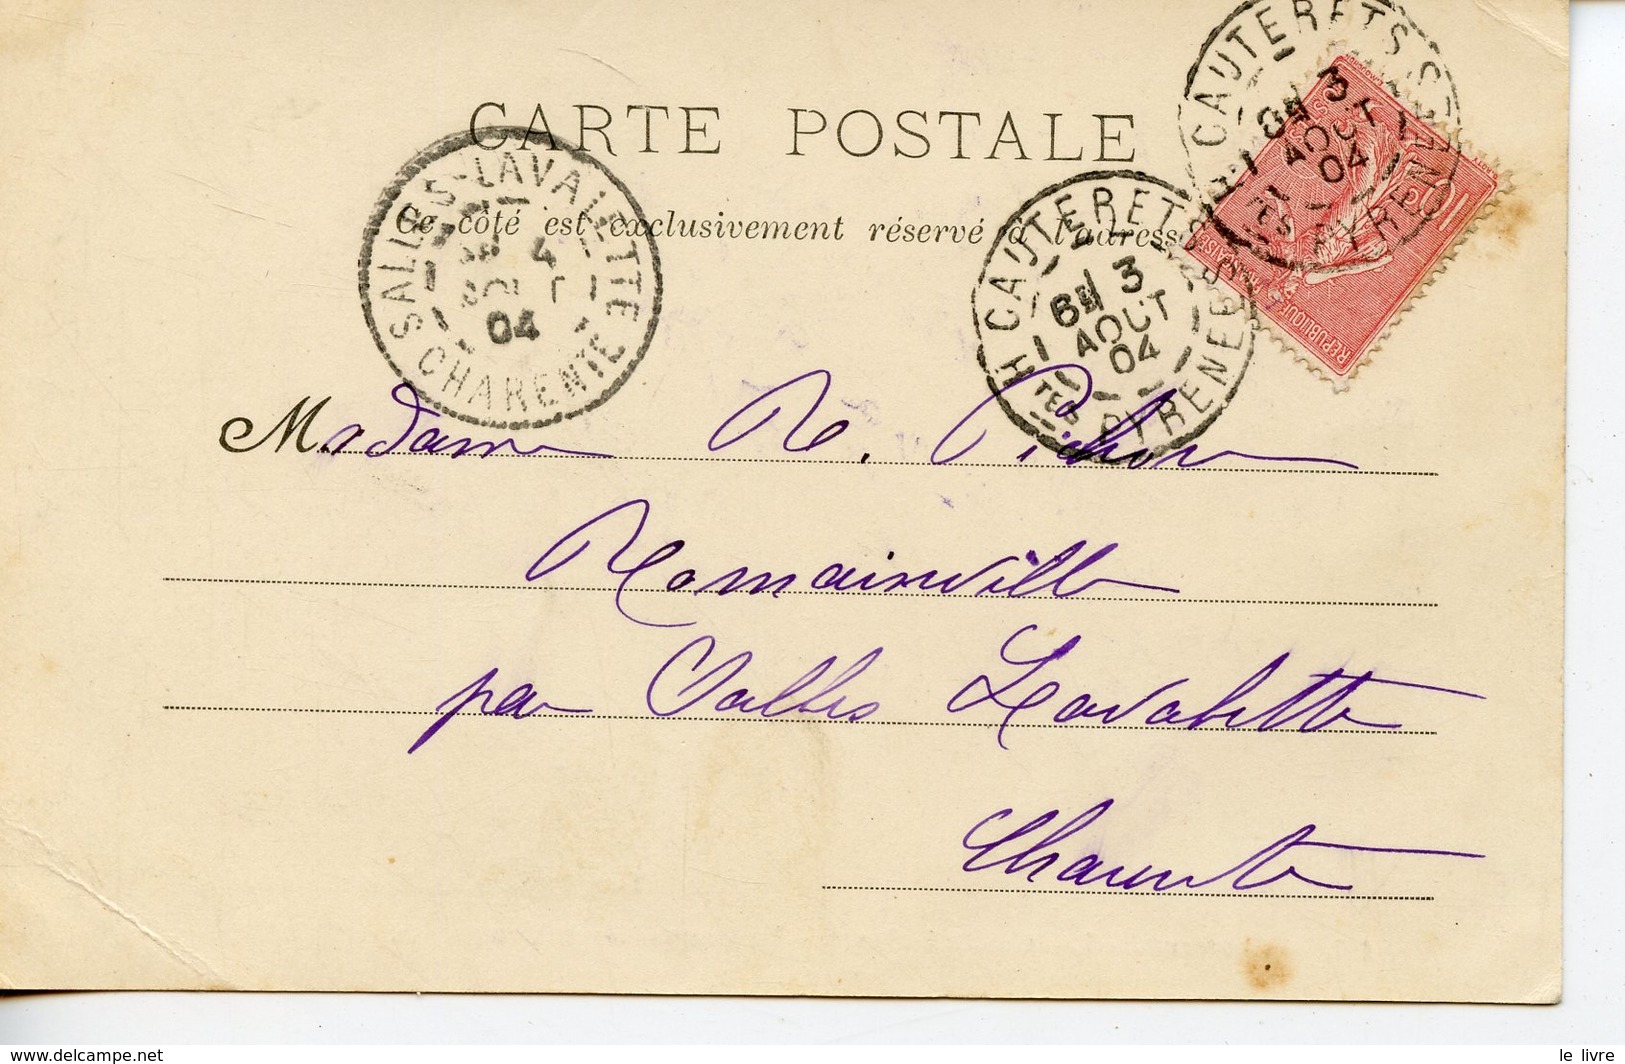 CARTE POSTALE
Ce côté est exclusivement réservé à l'adresse
CAUTERETS
3
AOUT
04
SALLES-LAVALETTE
4
AOUT
04
CHARENTE
CAUTERETS
6E 3
AOUT
04
HTES PYRENEES
REPUBLIQUE FRANCAISE
10
Madame R. Pichon
Romainville
par Salles Lavalette
Charente
www.delcampe.net
le livre